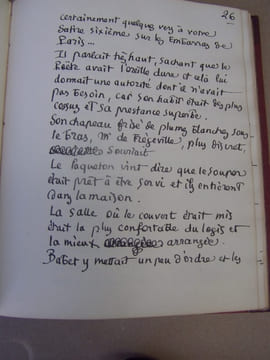 26
certainement quelques vers à votre
Satire sixième sur les Embarras de
Paris...
Il parlait très haut, sachant que le
Poète avait l'oreille dure et cela lui
donnait une autorité dont il n'avait
pas besoin, car son habit était des plus
cossus et sa prestance superbe.
Son chapeau frisé de plumes blanches sous
le bras, Mr de Frégeville, plus discret,
souriait.
Le Poqueton vint dire que le souper
était prêt à être servi et ils entrèrent
dans la maison.
La salle où le couvert était mis
était la plus confortable du logis et
la mieux arrangée.
Babet y mettait un peu d'ordre et les